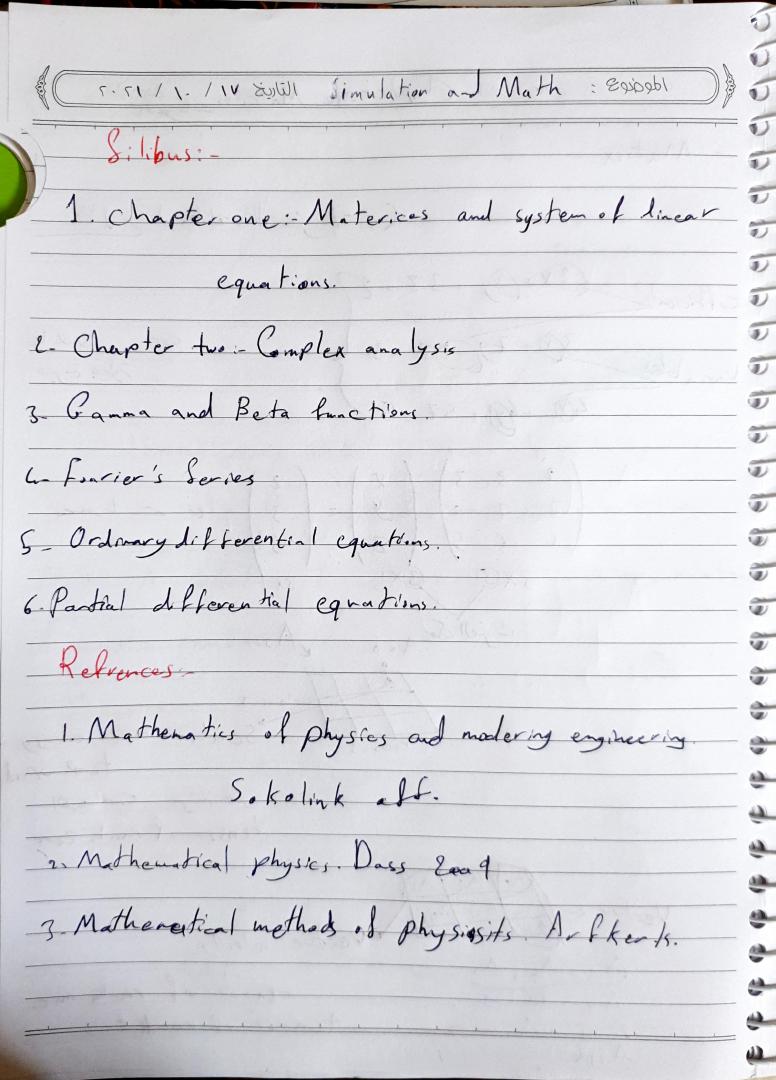 الموضوع : Simulation and Math التاريخ ٢٠٢١ / ١٠ / ١٧
Silibus:-
1. Chapter one:- Materices and system of linear
equations.
2- Chapter two:- Complex analysis
3- Gamma and Beta functions.
4- Fourier's Series
5- Ordinary differential equations.
6. Partial differential equations.
Refrences-
1. Mathematics of physics and modering engineering.
Sokolink off.
2. Mathematical physics. Dass 2009
3. Mathematical methods of physisits. Arfkents.